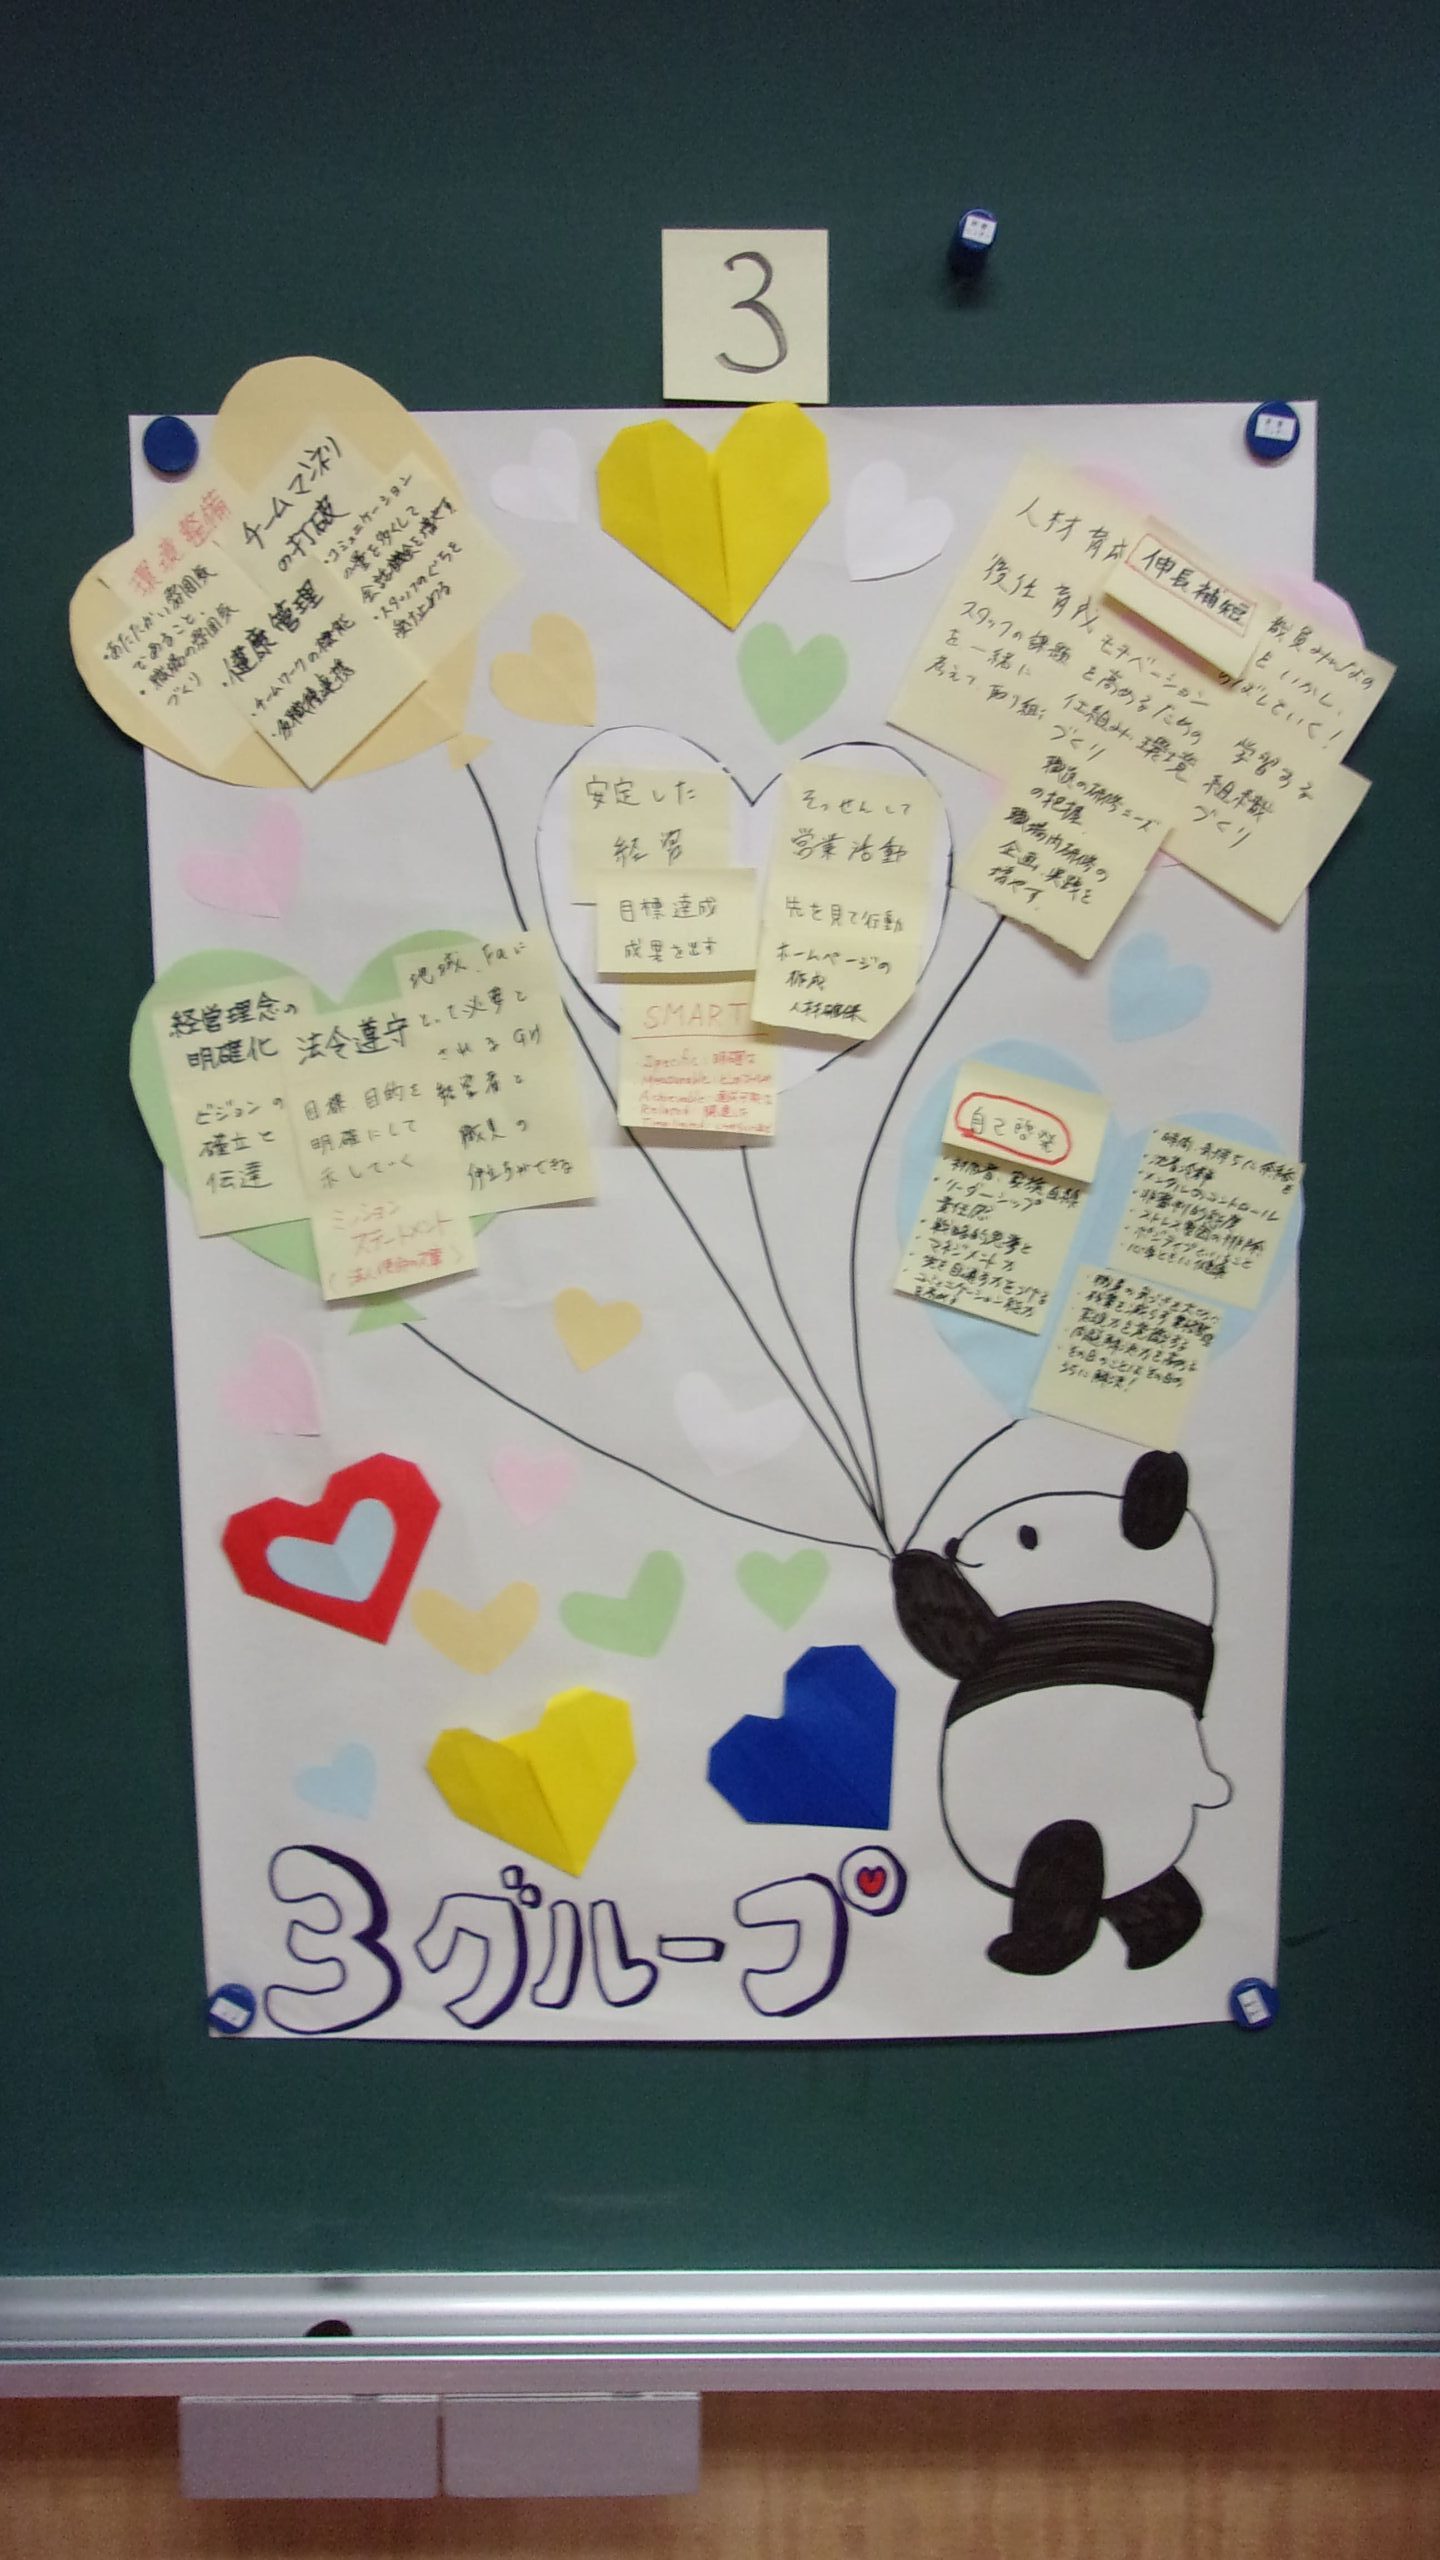 3
環境整備
・あたたかい雰囲気
であること、
・職場の雰囲気
づくり
チームマンネリ
の打破
・健康管理
・チームワークの構築
・多職種連携
・コミュニケーション
の量を多くして
会話機会を増やす
・スタッフのぐちを
受け止める
安定した
経営
目標達成
成果を出す
そっせんして
営業活動
先を見て行動
ホームページの
作成
人材確保
SMART
Specific:明確な
人材育成
後任育成
スタッフの課題
を一緒に
考えて取り組
伸長補短
職員みんなの
といかし、
のばしていく!
モチベーション
を高めるための
仕組み、環境
づくり
学習する
組織
づくり
職員の研修ニーズ
の把握
職場内研修の
企画、実践を
増やす。
経営理念の
明確化
ビジョンの
確立と
伝達
法令遵守
目標 目的を
明確にして
示していく
とって必要と
される
経営者と
職員の
ミッション
ステートメント
自己啓発
・リーダーシップ
責任感
・戦略的思考と
マネジメント力
・先を見通す力をつける
・コミュニケーション能力
・沈着冷静
・メンタルのコントロール
・非審判的態度
・ストレス要因の排除
・ポジティブでいること
・心身ともに健康
問題解決力を高める
・その日のことはその日の
うちに解決!
3グループ